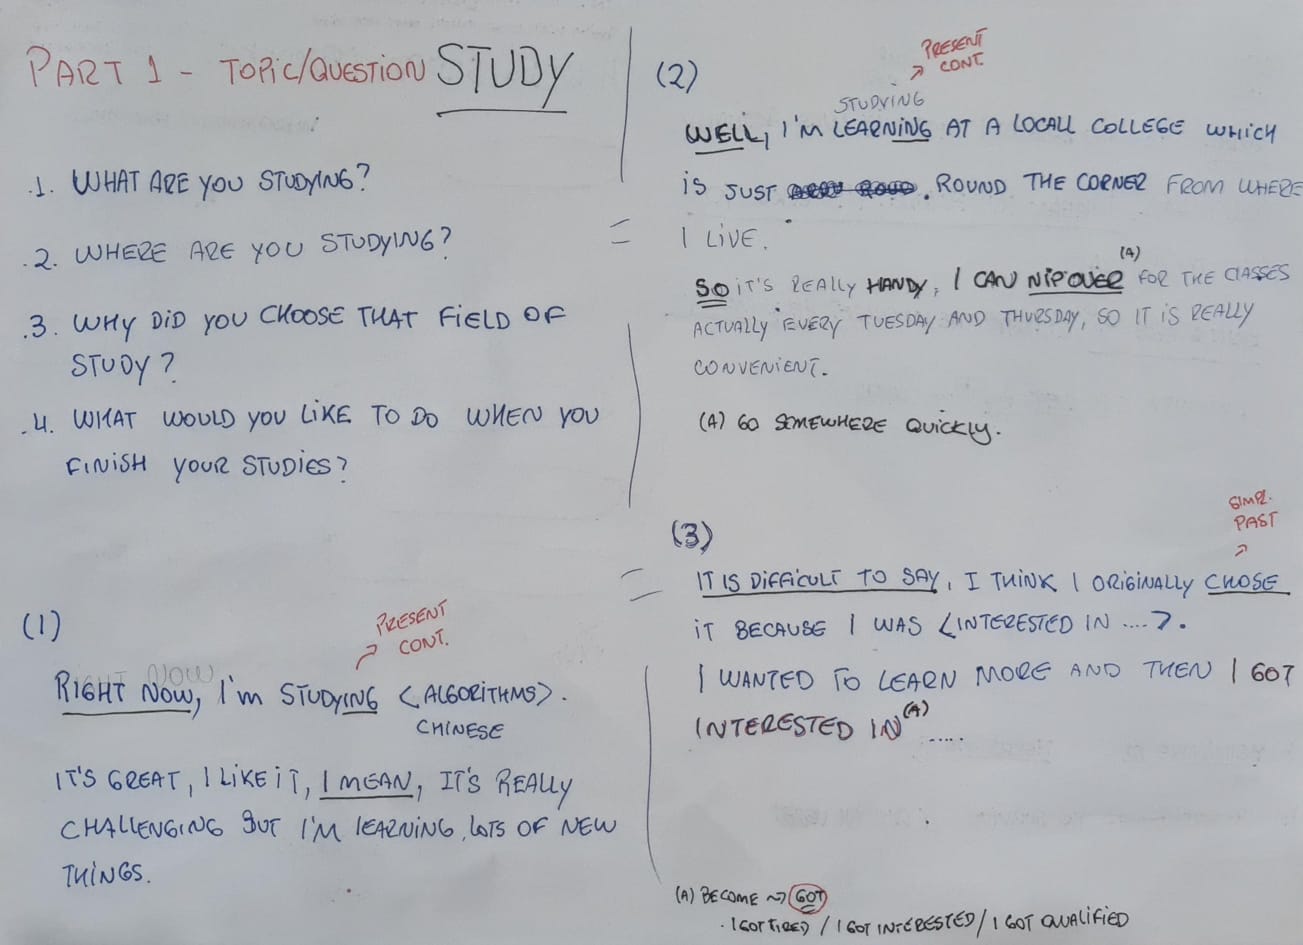 PART 1 - TOPIC/QUESTION STUDY
.1. WHAT ARE YOU STUDYING?
.2. WHERE ARE YOU STUDYING?
.3. WHY DID YOU CHOOSE THAT FIELD OF
STUDY?
.4. WHAT WOULD YOU LIKE TO DO WHEN YOU
FINISH YOUR STUDIES?
(1)
PRESENT
CONT.
NOW
RIGHT NOW, I'M STUDYING <ALGORITHMS>.
CHINESE
IT'S GREAT, I LIKE IT, I MEAN, IT'S REALLY
CHALLENGING BUT I'M LEARNING LOTS OF NEW
THINGS.
(2)
PRESENT
CONT.
STUDYING
WELL, I'M LEARNING AT A LOCALL COLLEGE WHICH
IS JUST . ROUND THE CORNER FROM WHERE
I LIVE.
(A)
SO IT'S REALLY HANDY, I CAN NIP OVER FOR THE CLASSES
ACTUALLY EVERY TUESDAY AND THURSDAY, SO IT IS REALLY
CONVENIENT.
(A) GO SOMEWHERE QUICKLY.
(3)
SIMPL.
PAST
IT IS DIFFICULT TO SAY, I THINK I ORIGINALLY CHOSE
IT BECAUSE I WAS <INTERESTED IN ....>.
I WANTED TO LEARN MORE AND THEN I GOT
INTERESTED IN (A) .....
(A) BECOME → GOT
. I GOT TIRED / I GOT INTERESTED / I GOT QUALIFIED